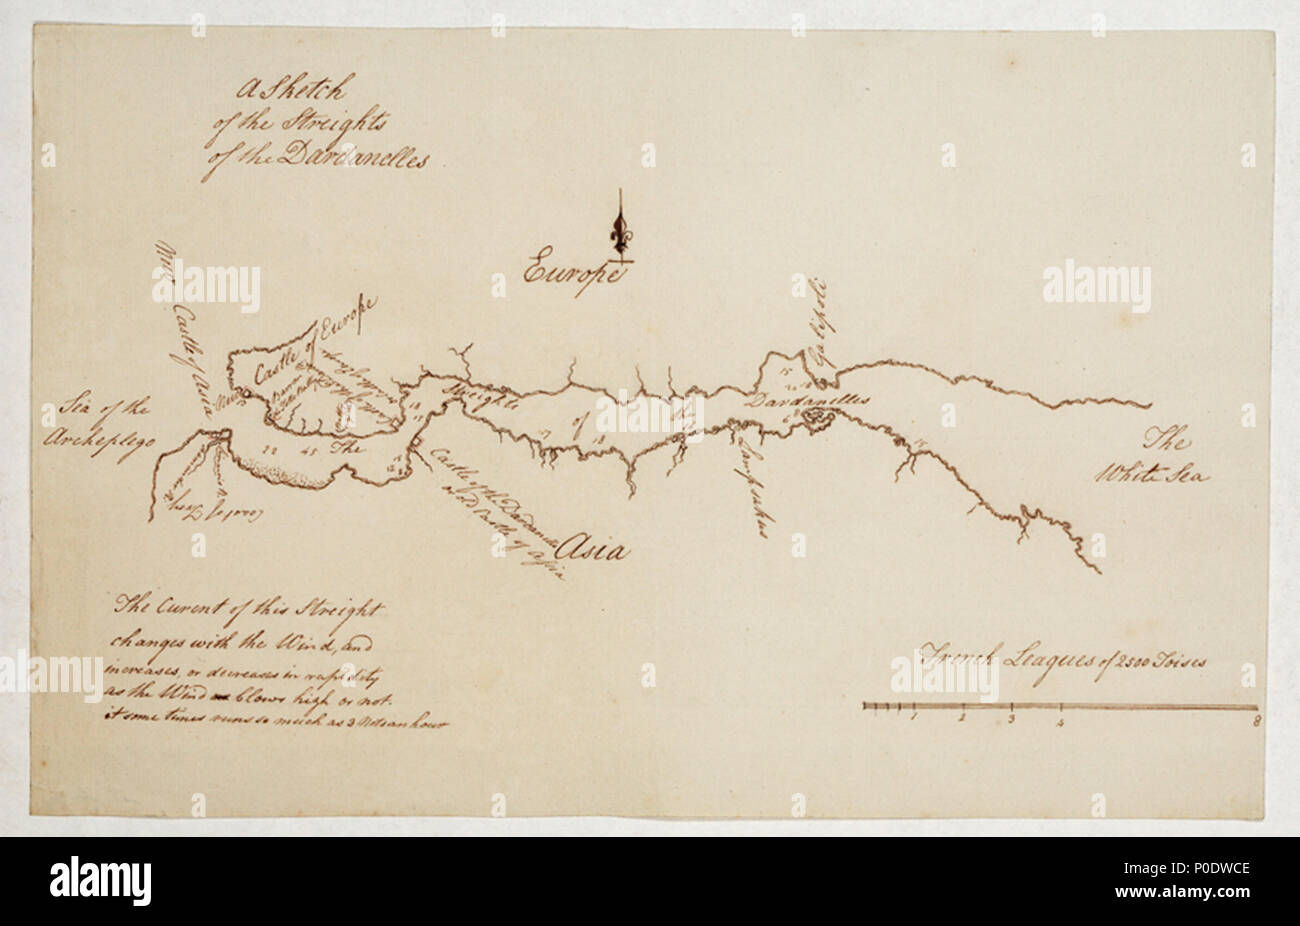 A Sketch
of the Streights
of the Dardanelles
Europe
New Castle of Asia
Castle of Europe
Galipoli
Streights
of
Dardanelles
Sea of the
Archepelego
The
The
White Sea
Lampsakus
Castle of the Dardanelles
or old Castle of Asia
Asia
The Current of this Streight
changes with the Wind, and
increases, or decreases in rapidity
as the Wind Blows high or not.
it some times runs so much as 3 Nots an hour
French Leagues of 2500 Toises
1 2 3 4 8
alamy
Image ID: P0DWCE
www.alamy.com